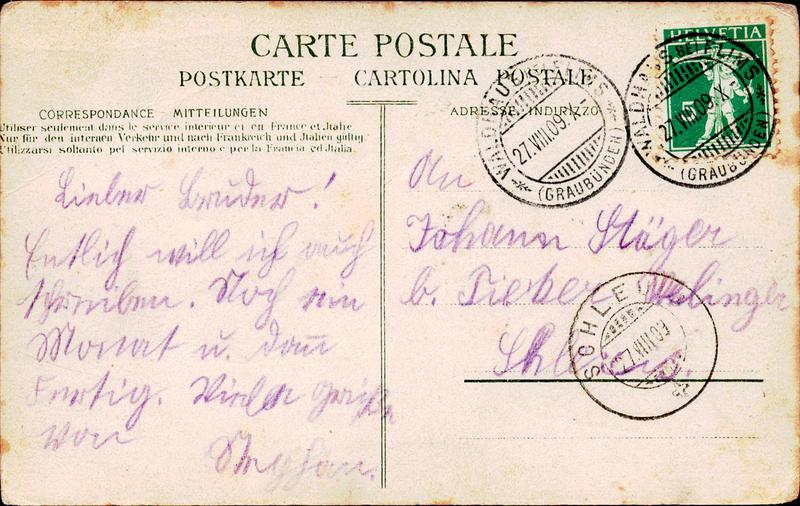 CARTE POSTALE
POSTKARTE CARTOLINA POSTALE
CORRESPONDANCE MITTEILUNGEN
Utiliser seulement dans le service intérieur et en France et Italie
Nur für den internen Verkehr und nach Frankreich und Italien gültig
Utilizzarsi soltanto pel servizio interno e per la Francia ed Italia
Lieber Bruder!
Entlich will ich auch
schreiben. Noch ein
Monat u. dann
Fertig. Viele Grüße
von
Stephan.
ADRESSE INDIRIZZO
HELVETIA
WALDHAUS BEI FLIMS
27.VIII.09.
(GRAUBÜNDEN)
WALDHAUS BEI FLIMS
27.VIII.09.X
(GRAUBÜNDEN)
An
Johann Stäger
b. Tieber
SCHLEI